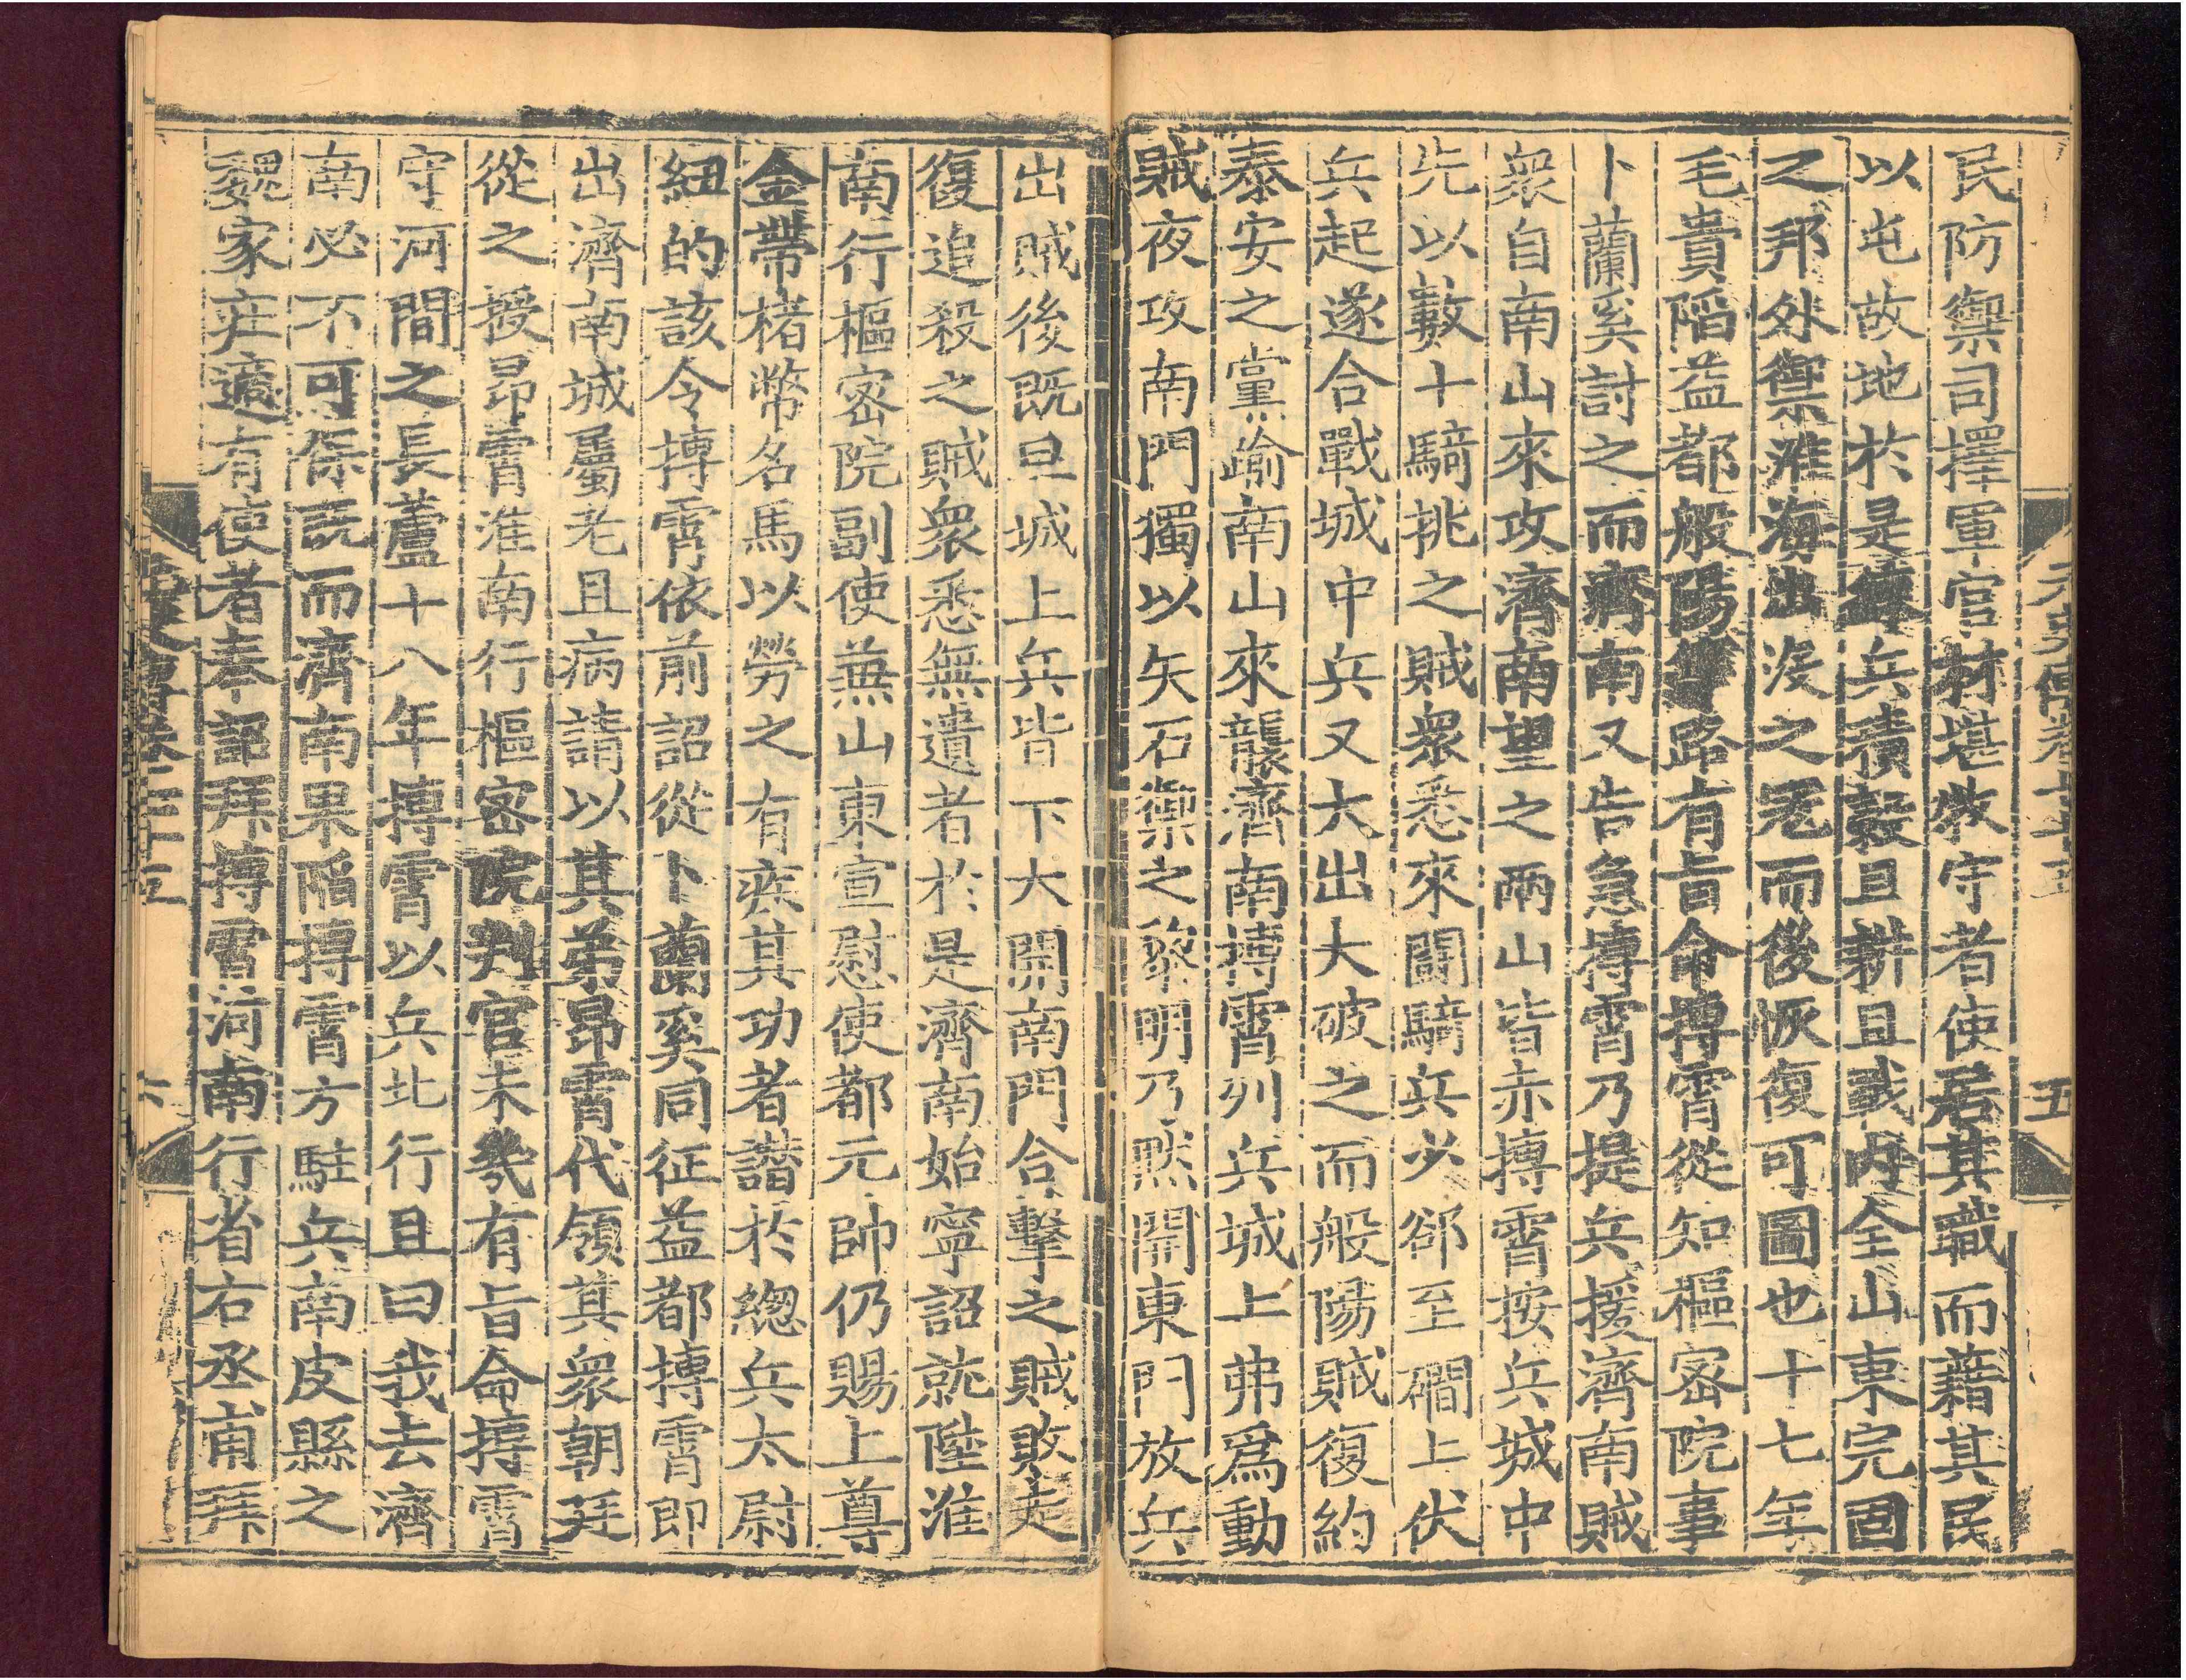 民防禦司擇軍官材堪牧守者使居其職而藉其民
以屯故地於是練兵積穀且耕且戰內全山東完固
之邦外禦淮海出沒之寇而後恢復可圖也十七年
毛貴陷益都般陽等路有旨命摶霄從知樞密院事
卜蘭奚討之而濟南又告急摶霄乃提兵援濟南賊
衆自南山來攻濟南望之兩山皆赤摶霄按兵城中
先以數十騎挑之賊衆悉來鬬騎兵少郤至磵上伏
兵起遂合戰城中兵又大出大破之而般陽賊復約
泰安之黨踰南山來襲濟南摶霄列兵城上弗爲動
賊夜攻南門獨以矢石禦之黎明乃默開東門放兵
出賊後旣旦城上兵皆下大開南門合擊之賊敗走
復追殺之賊衆悉無遺者於是濟南始寧詔就陞淮
南行樞密院副使兼山東宣慰使都元帥仍賜上尊
金帶楮幣名馬以勞之有疾其功者譖於總兵太尉
紐的該令摶霄依前詔從卜蘭奚同征益都摶霄卽
出濟南城屬老且病請以其弟昂霄代領其衆朝廷
從之授昂霄淮南行樞密院判官未幾有旨命摶霄
守河間之長蘆十八年摶霄以兵北行且曰我去濟
南必不可保旣而濟南果陷摶霄方駐兵南皮縣之
魏家莊適有使者奉詔拜摶霄河南行省右丞甫拜